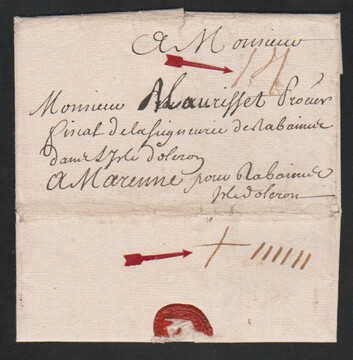 A Monsieur
Monsieur Laurisset Procur
fiscal de la seigneurie de Rabaine
dans L'Isle d'oleron
A Marenne pour Rabaine
Isle d'oleron